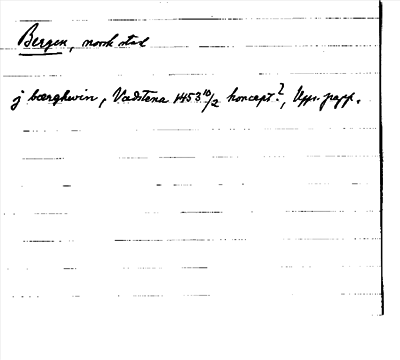 Bergen, norsk stad
j bærghwin, Vadstena 1453 10/2 koncept?, Upps. papp.